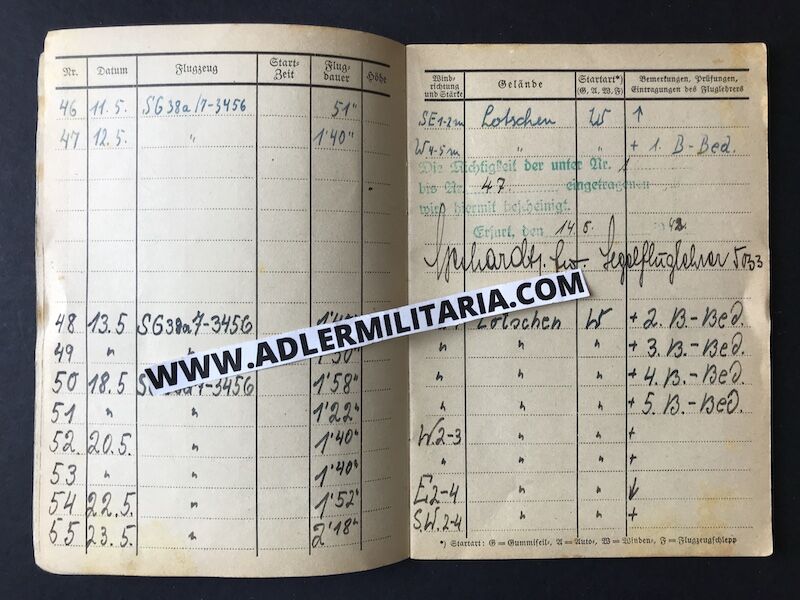 Nr. Datum Flugzeug Start-Zeit Flug-dauer Höhe
46 11.5. SG38a/7-3456 51"
47 12.5. " 1'40"
48 13.5 SG38a7-3456
49 " "
50 18.5 1'58"
51 " " 1'22"
52. 20.5. " 1'40"
53 " " 1'40"
54 22.5. " 1'52"
55 23.5. " 2'18"
WWW.ADLERMILITARIA.COM
Windrichtung und Stärke Gelände Startart*) (G, A, W, F) Bemerkungen, Prüfungen, Eintragungen des Fluglehrers
SE1-2m Lotschen W ↑
W4-5m " " + 1. B-Bed.
Die Richtigkeit der unter Nr. 1
bis Nr. 47 eingetragenen
wird hiermit bescheinigt.
Erfurt, den 14.5. 1942
Segelfluglehrer
Lotschen W + 2. B.-Bed.
" " " + 3. B.-Bed.
" " " + 4. B.-Bed.
" " " + 5. B.-Bed.
W.2-3 " " +
" " " +
E2-4 " " ↓
S.W.2-4 " " +
*) Startart: G = Gummiseil-, A = Auto-, W = Winden-, F = Flugzeugschlepp